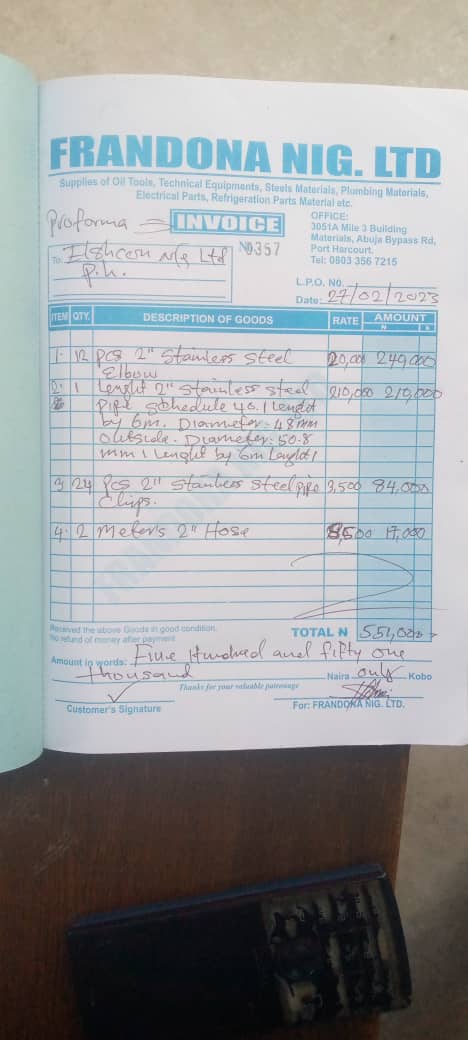 FRANDONA NIG. LTD
Supplies of Oil Tools, Technical Equipments, Steels Materials, Plumbing Materials,
Electrical Parts, Refrigeration Parts Material etc.
Proforma INVOICE
OFFICE:
3051A Mile 3 Building
Materials, Abuja Bypass Rd,
Port Harcourt.
Tel: 0803 356 7215
To: Nig Ltd
P.h.
No 357
L.P.O. NO.
Date: 27/02/2023
ITEM QTY. DESCRIPTION OF GOODS RATE AMOUNT
N K
1. 12 Pcs 2" Stainless Steel 20,000 249,000
Elbow
2. 1 Lenght 2" Stainless steel 210,000 210,000
Pipe Schedule 40. 1 Lenght
by 6m. Diameter: 48mm
Outside. Diameter: 50.8
mm 1 Lenght by 6m
3 24 Pcs 2" Stainless Steel pipe 3,500 84,000
Clips.
4. 2 Meters 2" Hose 8,500 17,000
Received the above Goods in good condition.
No refund of money after payment
TOTAL N 551,000
Amount in words: Five Hundred and fifty one
thousand Naira only Kobo
Thanks for your valuable patronage
Customer's Signature
For: FRANDONA NIG. LTD.